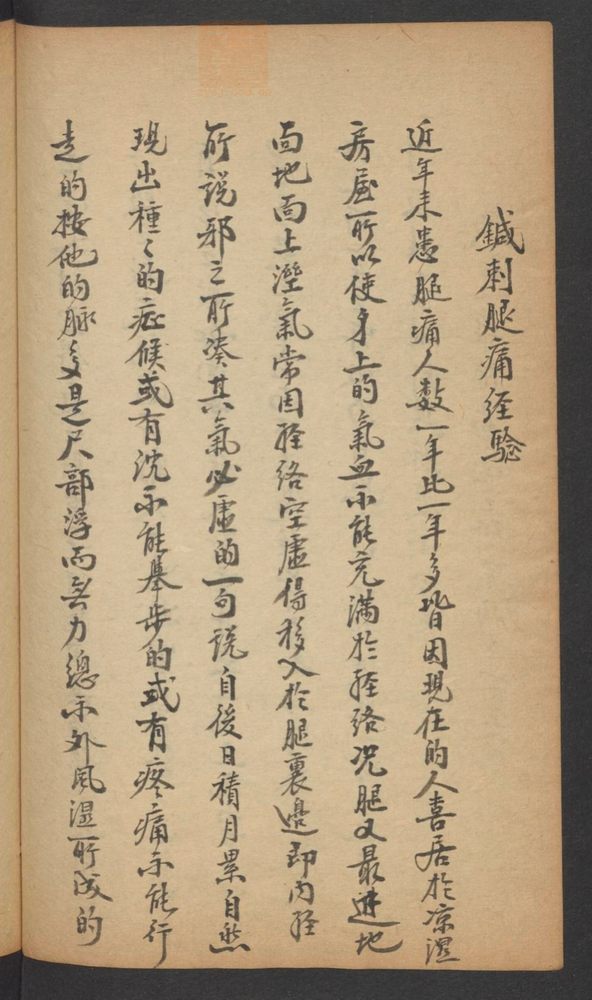 鍼刺腿痛经驗
近年来患腿痛人数一年比一年多皆因現在的人喜居於凉濕
房屋所以使身上的氣血不能充满於經络况腿又最进地
面地面上溼氣常因經络空虚得移入於腿裏邊即内經
所説邪之所凑其氣必虚的一句说自後日積月累自然
現出種々的症候或有沈不能舉步的或有疼痛不能行
走的按他的脈多是尺部浮而無力總不外風濕所成的